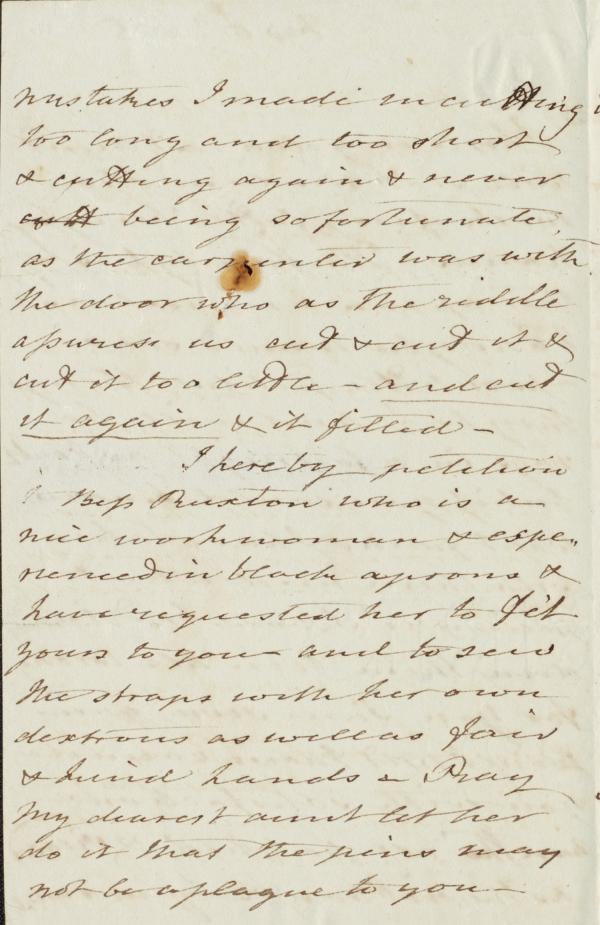 mistakes I made in cutting
too long and too short
& cutting again & never
cutt being so fortunate
as the carpenter was with
the door who as the riddle
assures us cut & cut it &
cut it too little – and cut
it again & it fitted –
I hereby petition
Bess Ruxton who is a
nice workwoman & expe„
rienced in black aprons &
have requested her to fit
yours to you – and to sew
the straps with her own
dextrous as well as fair
& kind hands – Pray
My dearest aunt let her
do it that the pins may
not be a plague to you –